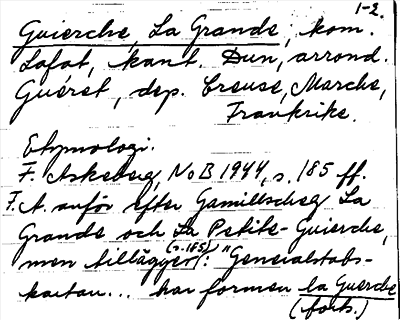 1-2.
Guierche, La Grande, kom.
Lafat, kant. Dun, arrond.
Guéret, dep. Creuse, Marche,
Frankrike.
Etymologi.
F. Askeberg, NoB 1944, s. 185 ff.
F. A. anför efter Gamillscheg La
Grande och La Petite-Guierche,
men tillägger (s. 185): "Generalstabs-
kartan... har formen la Guerche
(forts.)